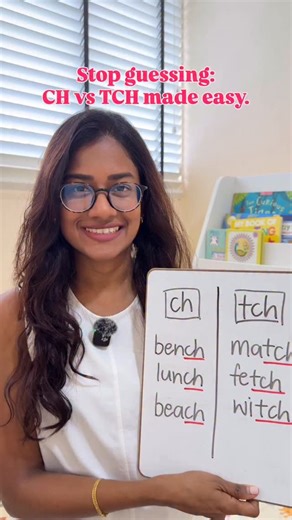 Stop guessing:
CH vs TCH made easy.
ch
tch
bench
match
lunch
fetch
beach
witch